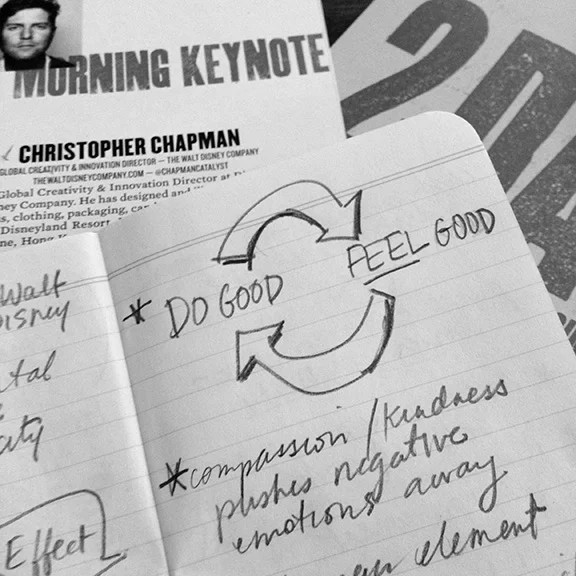 MORNING KEYNOTE
CHRISTOPHER CHAPMAN
GLOBAL CREATIVITY & INNOVATION DIRECTOR — THE WALT DISNEY COMPANY
THEWALTDISNEYCOMPANY.COM — @CHAPMANCATALYST
Global Creativity & Innovation Director at
ney Company. He has designed and
s, clothing, packaging,
Disneyland Resort
ne, Hong
Walt
Disney
Effect
* DO GOOD
FEEL GOOD
* compassion / kindness
pushes negative
emotions away
element